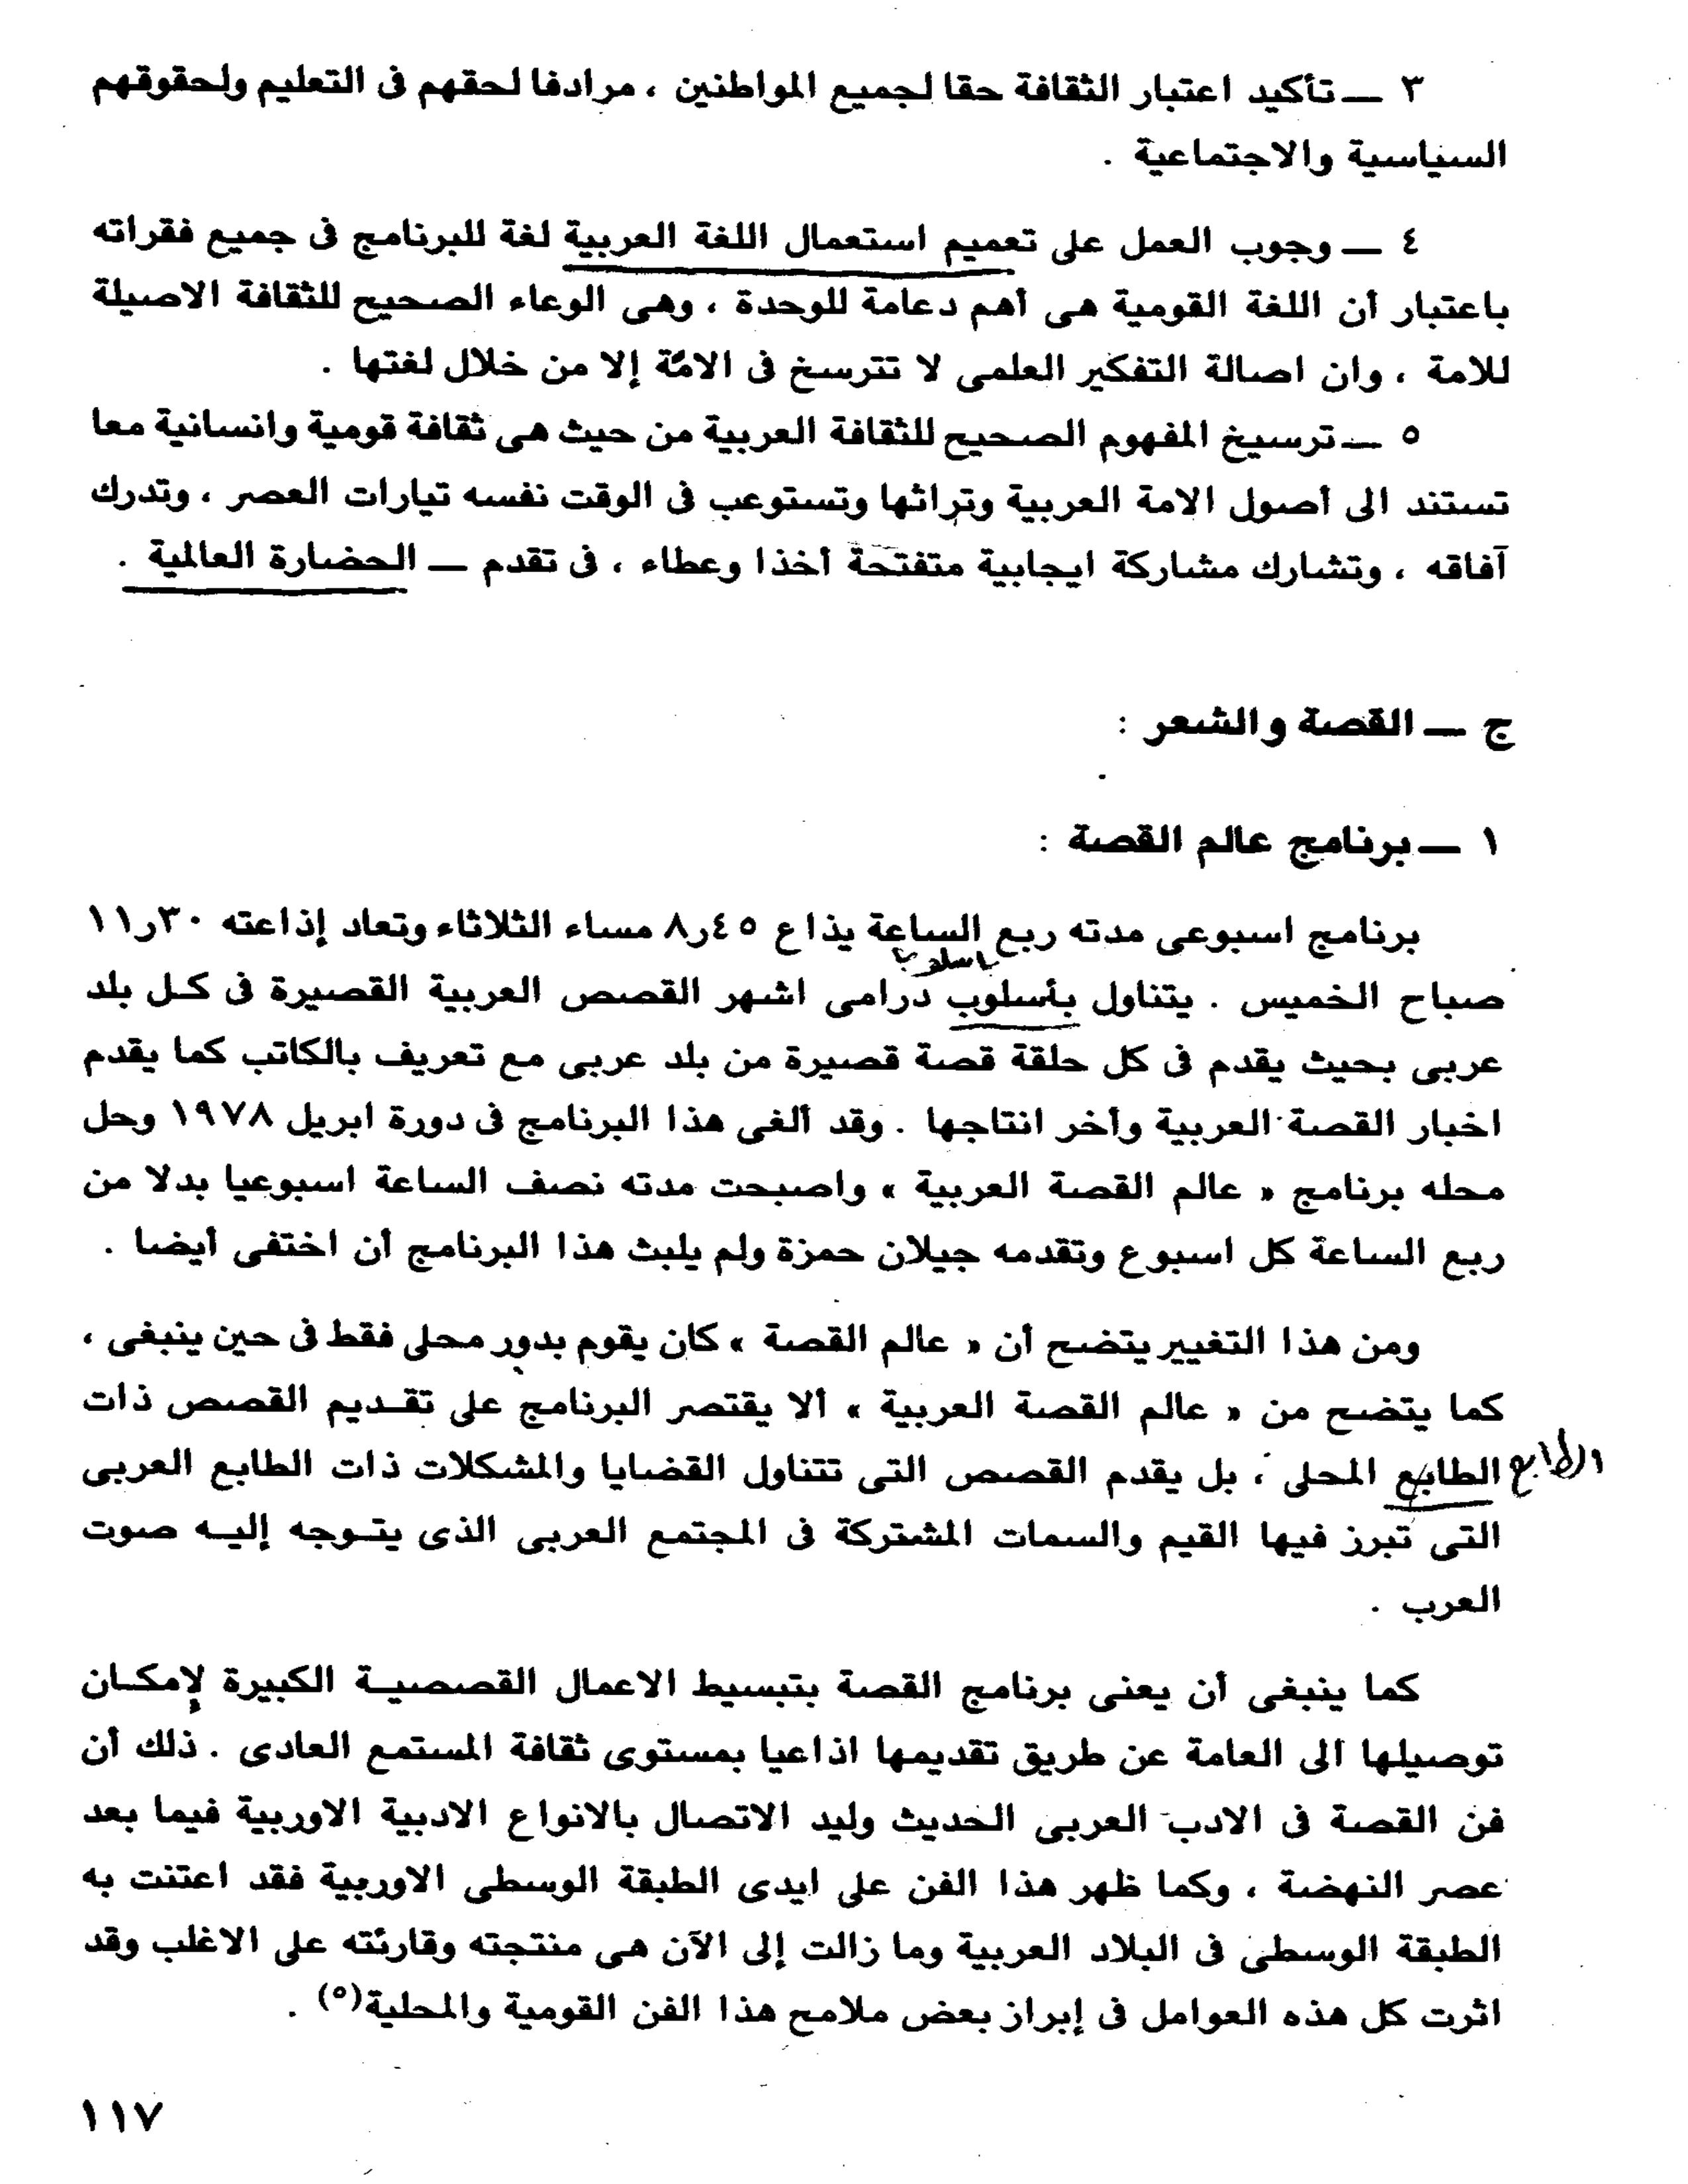 ٣ — تأكيد اعتبار الثقافة حقا لجميع المواطنين ، مرادفا لحقهم فى التعليم ولحقوقهم
السياسية والاجتماعية .
٤ — وجوب العمل على تعميم استعمال اللغة العربية لغة للبرنامج فى جميع فقراته
باعتبار أن اللغة القومية هى أهم دعامة للوحدة ، وهى الوعاء الصحيح للثقافة الاصيلة
للامة ، وان اصالة التفكير العلمى لا تترسخ فى الامة إلا من خلال لغتها .
٥ — ترسيخ المفهوم الصحيح للثقافة العربية من حيث هى ثقافة قومية وانسانية معا
تستند الى أصول الامة العربية وتراثها وتستوعب فى الوقت نفسه تيارات العصر ، وتدرك
آفاقه ، وتشارك مشاركة ايجابية متفتحة أخذا وعطاء ، فى تقدم — الحضارة العالمية .
ج — القصة والشعر :
١ — برنامج عالم القصة :
برنامج اسبوعى مدته ربع الساعة يذاع ٤٥ر٨ مساء الثلاثاء وتعاد إذاعته ٣٠ر١١
صباح الخميس . يتناول بأسلوب درامى اشهر القصص العربية القصيرة فى كل بلد
عربى بحيث يقدم فى كل حلقة قصة قصيرة من بلد عربى مع تعريف بالكاتب كما يقدم
اخبار القصة العربية وأخر انتاجها . وقد ألغى هذا البرنامج فى دورة ابريل ١٩٧٨ وحل
محله برنامج « عالم القصة العربية » واصبحت مدته نصف الساعة اسبوعيا بدلا من
ربع الساعة كل اسبوع وتقدمه جيلان حمزة ولم يلبث هذا البرنامج أن اختفى أيضا .
ومن هذا التغيير يتضح أن « عالم القصة » كان يقوم بدور محلى فقط فى حين ينبغى ،
كما يتضح من « عالم القصة العربية » ألا يقتصر البرنامج على تقديم القصص ذات
الطابع المحلى ، بل يقدم القصص التى تتناول القضايا والمشكلات ذات الطابع العربى
التى تبرز فيها القيم والسمات المشتركة فى المجتمع العربى الذى يتوجه إليه صوت
العرب .
كما ينبغى أن يعنى برنامج القصة بتبسيط الاعمال القصصية الكبيرة لإمكان
توصيلها الى العامة عن طريق تقديمها اذاعيا بمستوى ثقافة المستمع العادى . ذلك أن
فن القصة فى الادب العربى الحديث وليد الاتصال بالانواع الادبية الاوربية فيما بعد
عصر النهضة ، وكما ظهر هذا الفن على ايدى الطبقة الوسطى الاوربية فقد اعتنت به
الطبقة الوسطى فى البلاد العربية وما زالت إلى الآن هى منتجته وقارئته على الاغلب وقد
اثرت كل هذه العوامل فى إبراز بعض ملامح هذا الفن القومية والمحلية(٥) .
١١٧